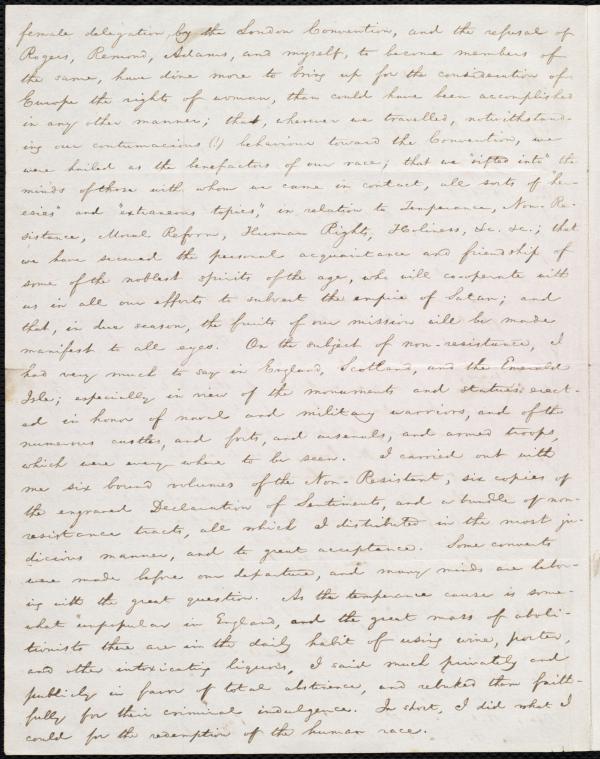 female delegation by the London Convention, and the refusal of
Rogers, Remond, Adams, and myself, to become members of
the same, have done more to bring up for the consideration of
Europe the rights of woman, than could have been accomplished
in any other manner; that, wherever we travelled, notwithstand-
ing our contumacious (!) behaviour toward the Convention, we
were hailed as the benefactors of our race; that we "sifted into" the
minds of those with whom we came in contact, all sorts of "he-
resies" and "extraneous topics," in relation to Temperance, Non-Re-
sistance, Moral Reform, Human Rights, Holiness, &c. &c.; that
we have secured the personal acquaintance and friendship of
some of the noblest spirits of the age, who will cooperate with
us in all our efforts to subvert the empire of Satan; and
that, in due season, the fruits of our mission will be made
manifest to all eyes. On the subject of non-resistance, I
had very much to say in England, Scotland, and the Emerald
Isle; especially in view of the monuments and statues erect-
ed in honor of naval and military warriors, and of the
numerous castles, and forts, and arsenals, and armed troops,
which were every where to be seen. I carried out with
me six bound volumes of the Non-Resistant, six copies of
the engraved Declaration of Sentiments, and a bundle of non-
resistance tracts, all which I distributed in the most ju-
dicious manner, and to great acceptance. Some converts
were made before our departure, and many minds are labor-
ing with the great question. As the temperance cause is some-
what unpopular in England, and the great mass of aboli-
tionists there are in the daily habit of using wine, porter,
and other intoxicating liquors, I said much privately and
publicly in favor of total abstinence, and rebuked them faith-
fully for their criminal indulgence. In short, I did what I
could for the redemption of the human race.